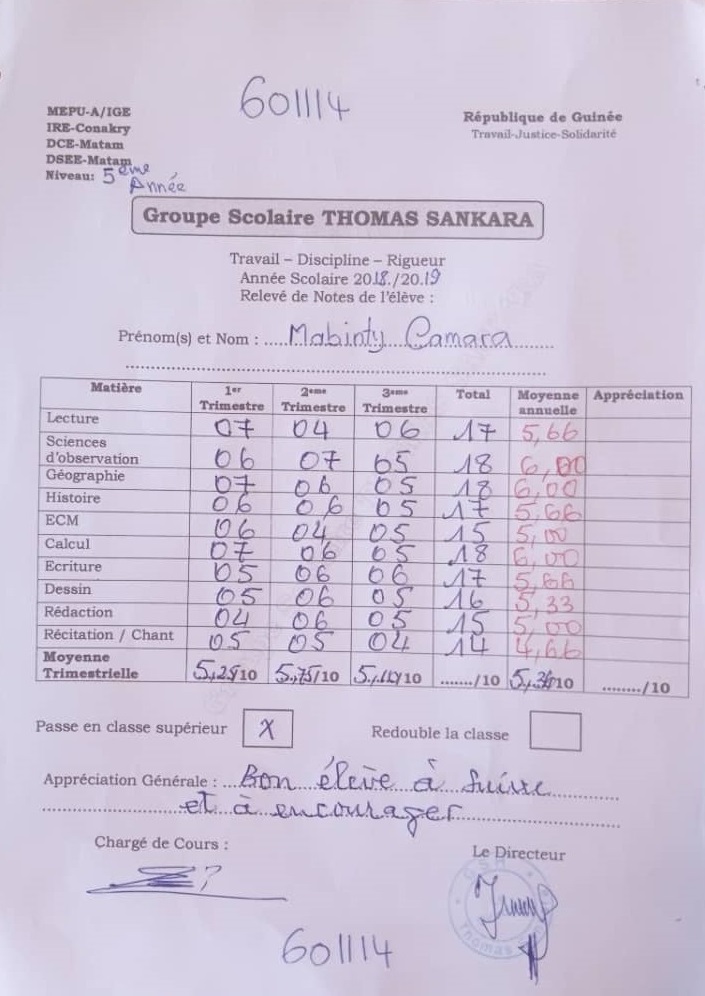 601114
MEPU-A/IGE
IRE-Conakry
DCE-Matam
DSEE-Matam
Niveau: 5ème Année
République de Guinée
Travail-Justice-Solidarité
Groupe Scolaire THOMAS SANKARA
Travail – Discipline – Rigueur
Année Scolaire 2018./20.19
Relevé de Notes de l'élève :
Prénom(s) et Nom : Mabinty Camara
Matière 1er Trimestre 2ème Trimestre 3ème Trimestre Total Moyenne annuelle Appréciation
Lecture 07 04 06 17 5,66
Sciences d'observation 06 07 05 18 6,00
Géographie 07 06 05 18 6,00
Histoire 06 06 05 17 5,66
ECM 06 04 05 15 5,00
Calcul 07 06 05 18 6,00
Ecriture 05 06 06 17 5,66
Dessin 05 06 05 16 5,33
Rédaction 04 06 05 15 5,00
Récitation / Chant 05 05 04 14 4,66
Moyenne Trimestrielle /10 5,75/10 /10 ......../10 /10 ......../10
Passe en classe supérieur X Redouble la classe
Appréciation Générale : Bon élève à suivre
et à encourager
Chargé de Cours :
Le Directeur
601114